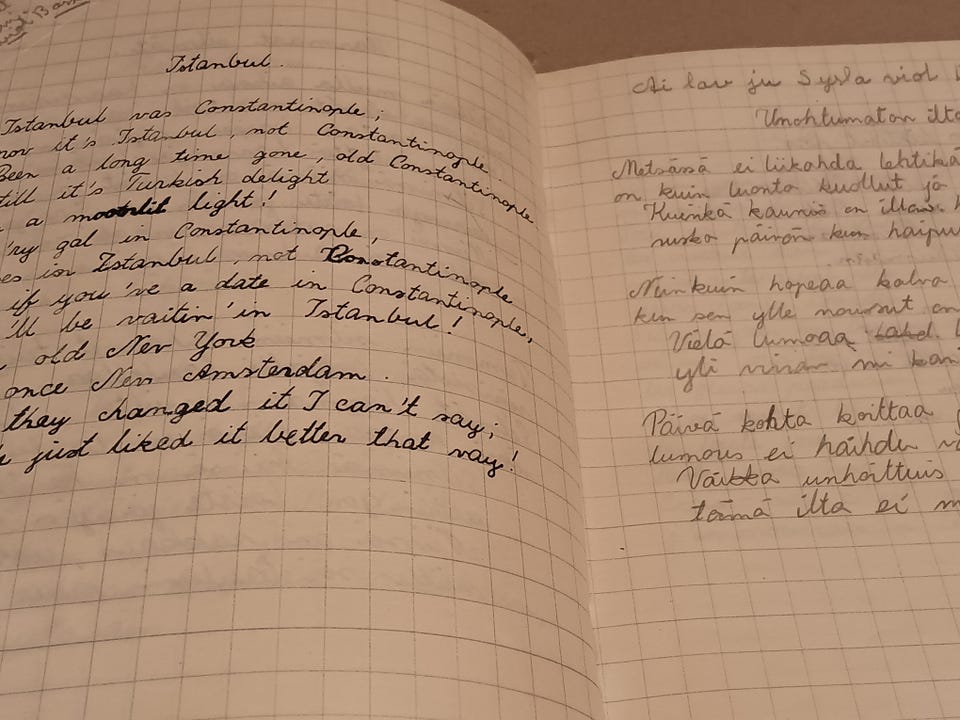 Istanbul.
Istanbul was Constantinople;
now it's Istanbul, not Constantinople.
Been a long time gone, old Constantinople
till it's Turkish delight
a moonlit light!
'ry gal in Constantinople,
es in Istanbul, not Constantinople
if you've a date in Constantinople,
'll be waitin' in Istanbul!
old New York
once New Amsterdam.
they changed it I can't say;
just liked it better that way!
Ai lav ju Sysla viol
Unohtumaton ilta
Metsässä ei liikahda lehtikä
on kuin luonto kuollut jo
Kuinka kaunis on illan h
rusko päivän kun haipu
Niinkuin hopeaa kalva
kun sen ylle noussut on
Vielä lumoaa
yli vinan mi kari
Päivä kohta koittaa
lumous ei häihdu vo
Vaikka unhoittuis
tämä ilta ei m